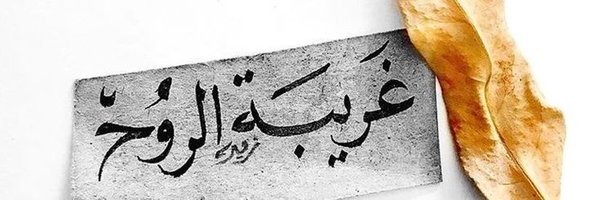 غَريبَة الروُحّ